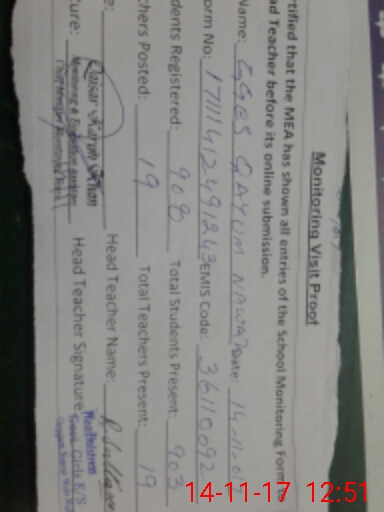 Monitoring Visit Proof
rtified that the MEA has shown all entries of the School Monitoring Form to
ad Teacher before its online submission.
Name: GGES QAYUM NAWAZ Date: 14-11-017
orm No: 1711141249 1243 EMIS Code: 36110092
dents Registered: 908 Total Students Present: 903
chers Posted: 19 Total Teachers Present: 19
e: Qaisar Head Teacher Name:
ure: Monitoring & Head Teacher Signature:
Govt. Girls E/S
14-11-17 12:51